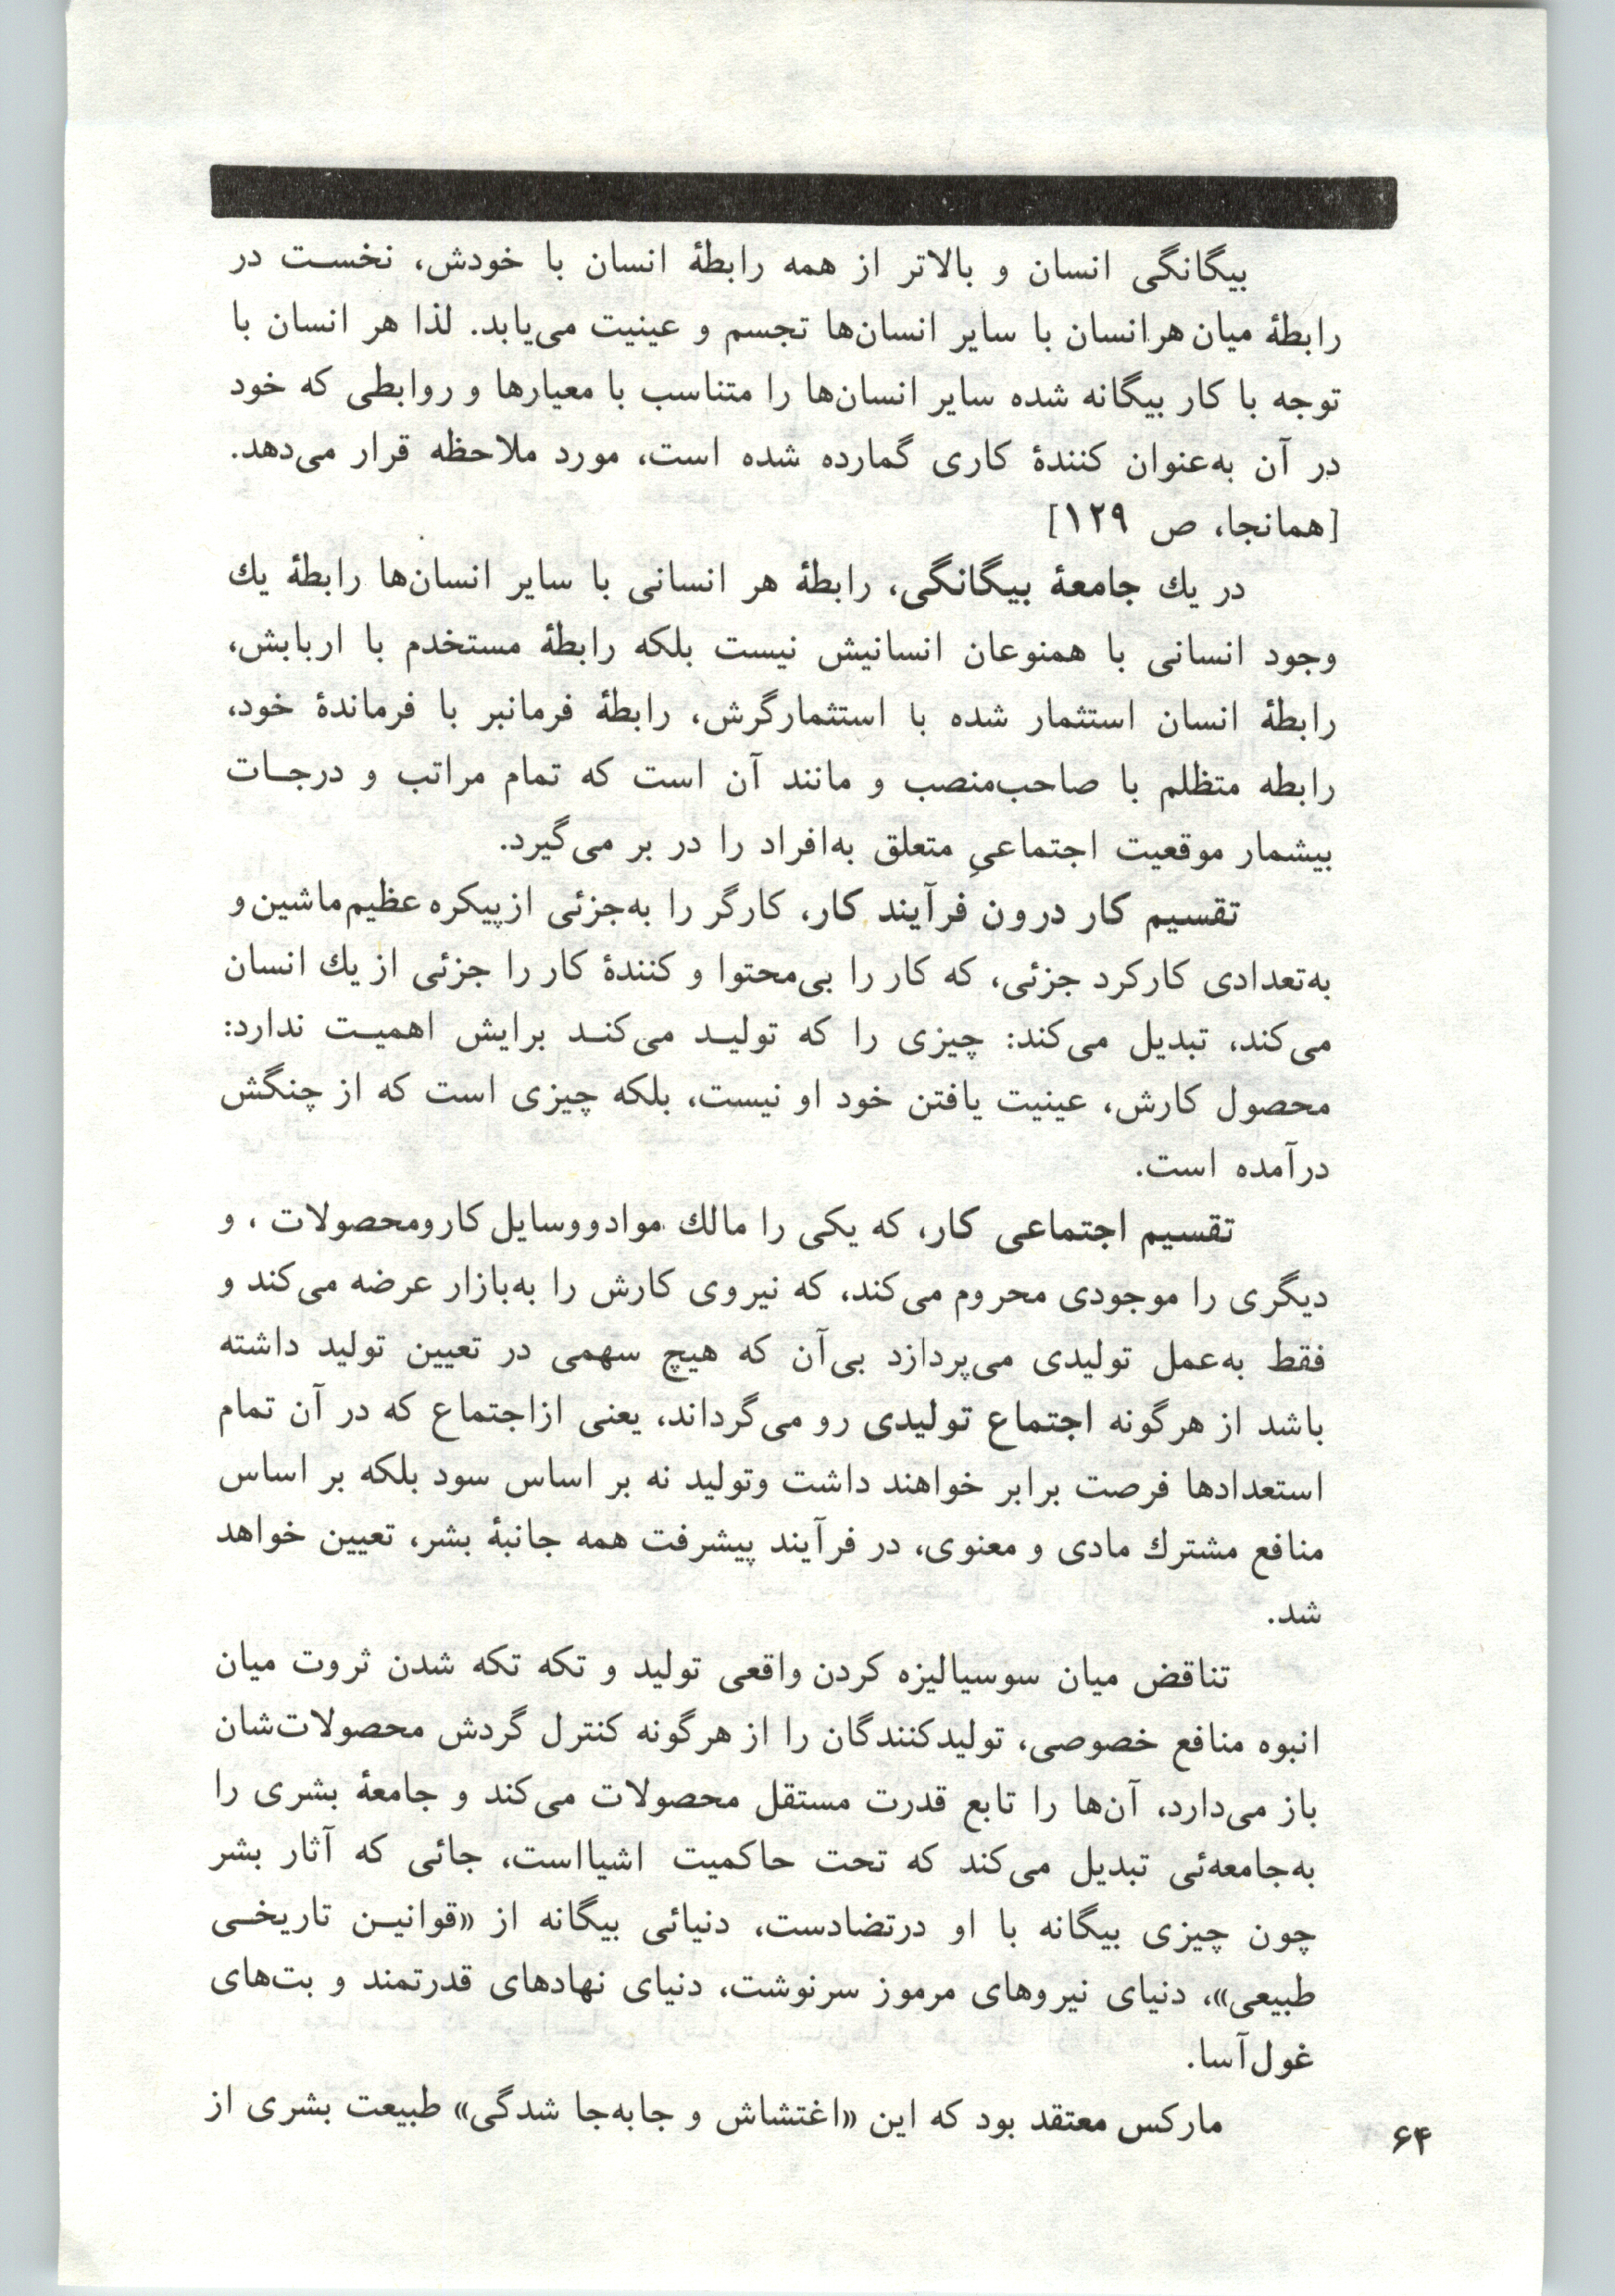 بیگانگی انسان و بالاتر از همه رابطهٔ انسان با خودش، نخست در
رابطهٔ میان هرانسان با سایر انسان‌ها تجسم و عینیت می‌یابد. لذا هر انسان با
توجه با کار بیگانه شده سایر انسان‌ها را متناسب با معیارها و روابطی که خود
در آن به‌عنوان کنندهٔ کاری گمارده شده است، مورد ملاحظه قرار می‌دهد.
[همانجا، ص ۱۲۹]
در یك جامعهٔ بیگانگی، رابطهٔ هر انسانی با سایر انسان‌ها رابطهٔ یك
وجود انسانی با همنوعان انسانیش نیست بلکه رابطهٔ مستخدم با اربابش،
رابطهٔ انسان استثمار شده با استثمارگرش، رابطهٔ فرمانبر با فرماندهٔ خود،
رابطه متظلم با صاحب‌منصب و مانند آن است که تمام مراتب و درجات
بیشمار موقعیت اجتماعیِ متعلق به‌افراد را در بر می‌گیرد.
تقسیم کار درون فرآیند کار، کارگر را به‌جزئی ازپیکره عظیم‌ماشین و
به‌تعدادی کارکرد جزئی، که کار را بی‌محتوا و کنندهٔ کار را جزئی از یك انسان
می‌کند، تبدیل می‌کند: چیزی را که تولید می‌کند برایش اهمیت ندارد:
محصول کارش، عینیت یافتن خود او نیست، بلکه چیزی است که از چنگش
درآمده است.
تقسیم اجتماعی کار، که یکی را مالك موادووسایل کارومحصولات ، و
دیگری را موجودی محروم می‌کند، که نیروی کارش را به‌بازار عرضه می‌کند و
فقط به‌عمل تولیدی می‌پردازد بی‌آن که هیچ سهمی در تعیین تولید داشته
باشد از هرگونه اجتماع تولیدی رو می‌گرداند، یعنی ازاجتماع که در آن تمام
استعدادها فرصت برابر خواهند داشت وتولید نه بر اساس سود بلکه بر اساس
منافع مشترك مادی و معنوی، در فرآیند پیشرفت همه جانبهٔ بشر، تعیین خواهد
شد.
تناقض میان سوسیالیزه کردن واقعی تولید و تکه تکه شدن ثروت میان
انبوه منافع خصوصی، تولیدکنندگان را از هرگونه کنترل گردش محصولات‌شان
باز می‌دارد، آن‌ها را تابع قدرت مستقل محصولات می‌کند و جامعهٔ بشری را
به‌جامعه‌ئی تبدیل می‌کند که تحت حاکمیت اشیااست، جائی که آثار بشر
چون چیزی بیگانه با او درتضادست، دنیائی بیگانه از «قوانین تاریخی
طبیعی»، دنیای نیروهای مرموز سرنوشت، دنیای نهادهای قدرتمند و بت‌های
غول‌آسا.
مارکس معتقد بود که این «اغتشاش و جابه‌جا شدگی» طبیعت بشری از
۶۴